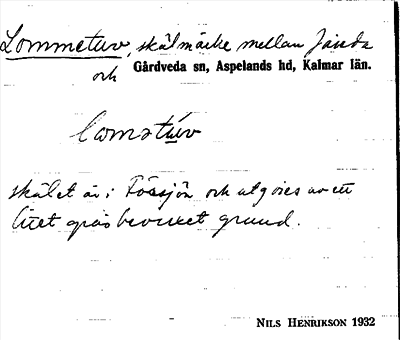 Lommetuv, skälmärke mellan Järeda
och Gårdveda sn, Aspelands hd, Kalmar län.
skälet är i Försjön och utgöres av ett
litet gräsbevuxet grund.
NILS HENRIKSON 1932